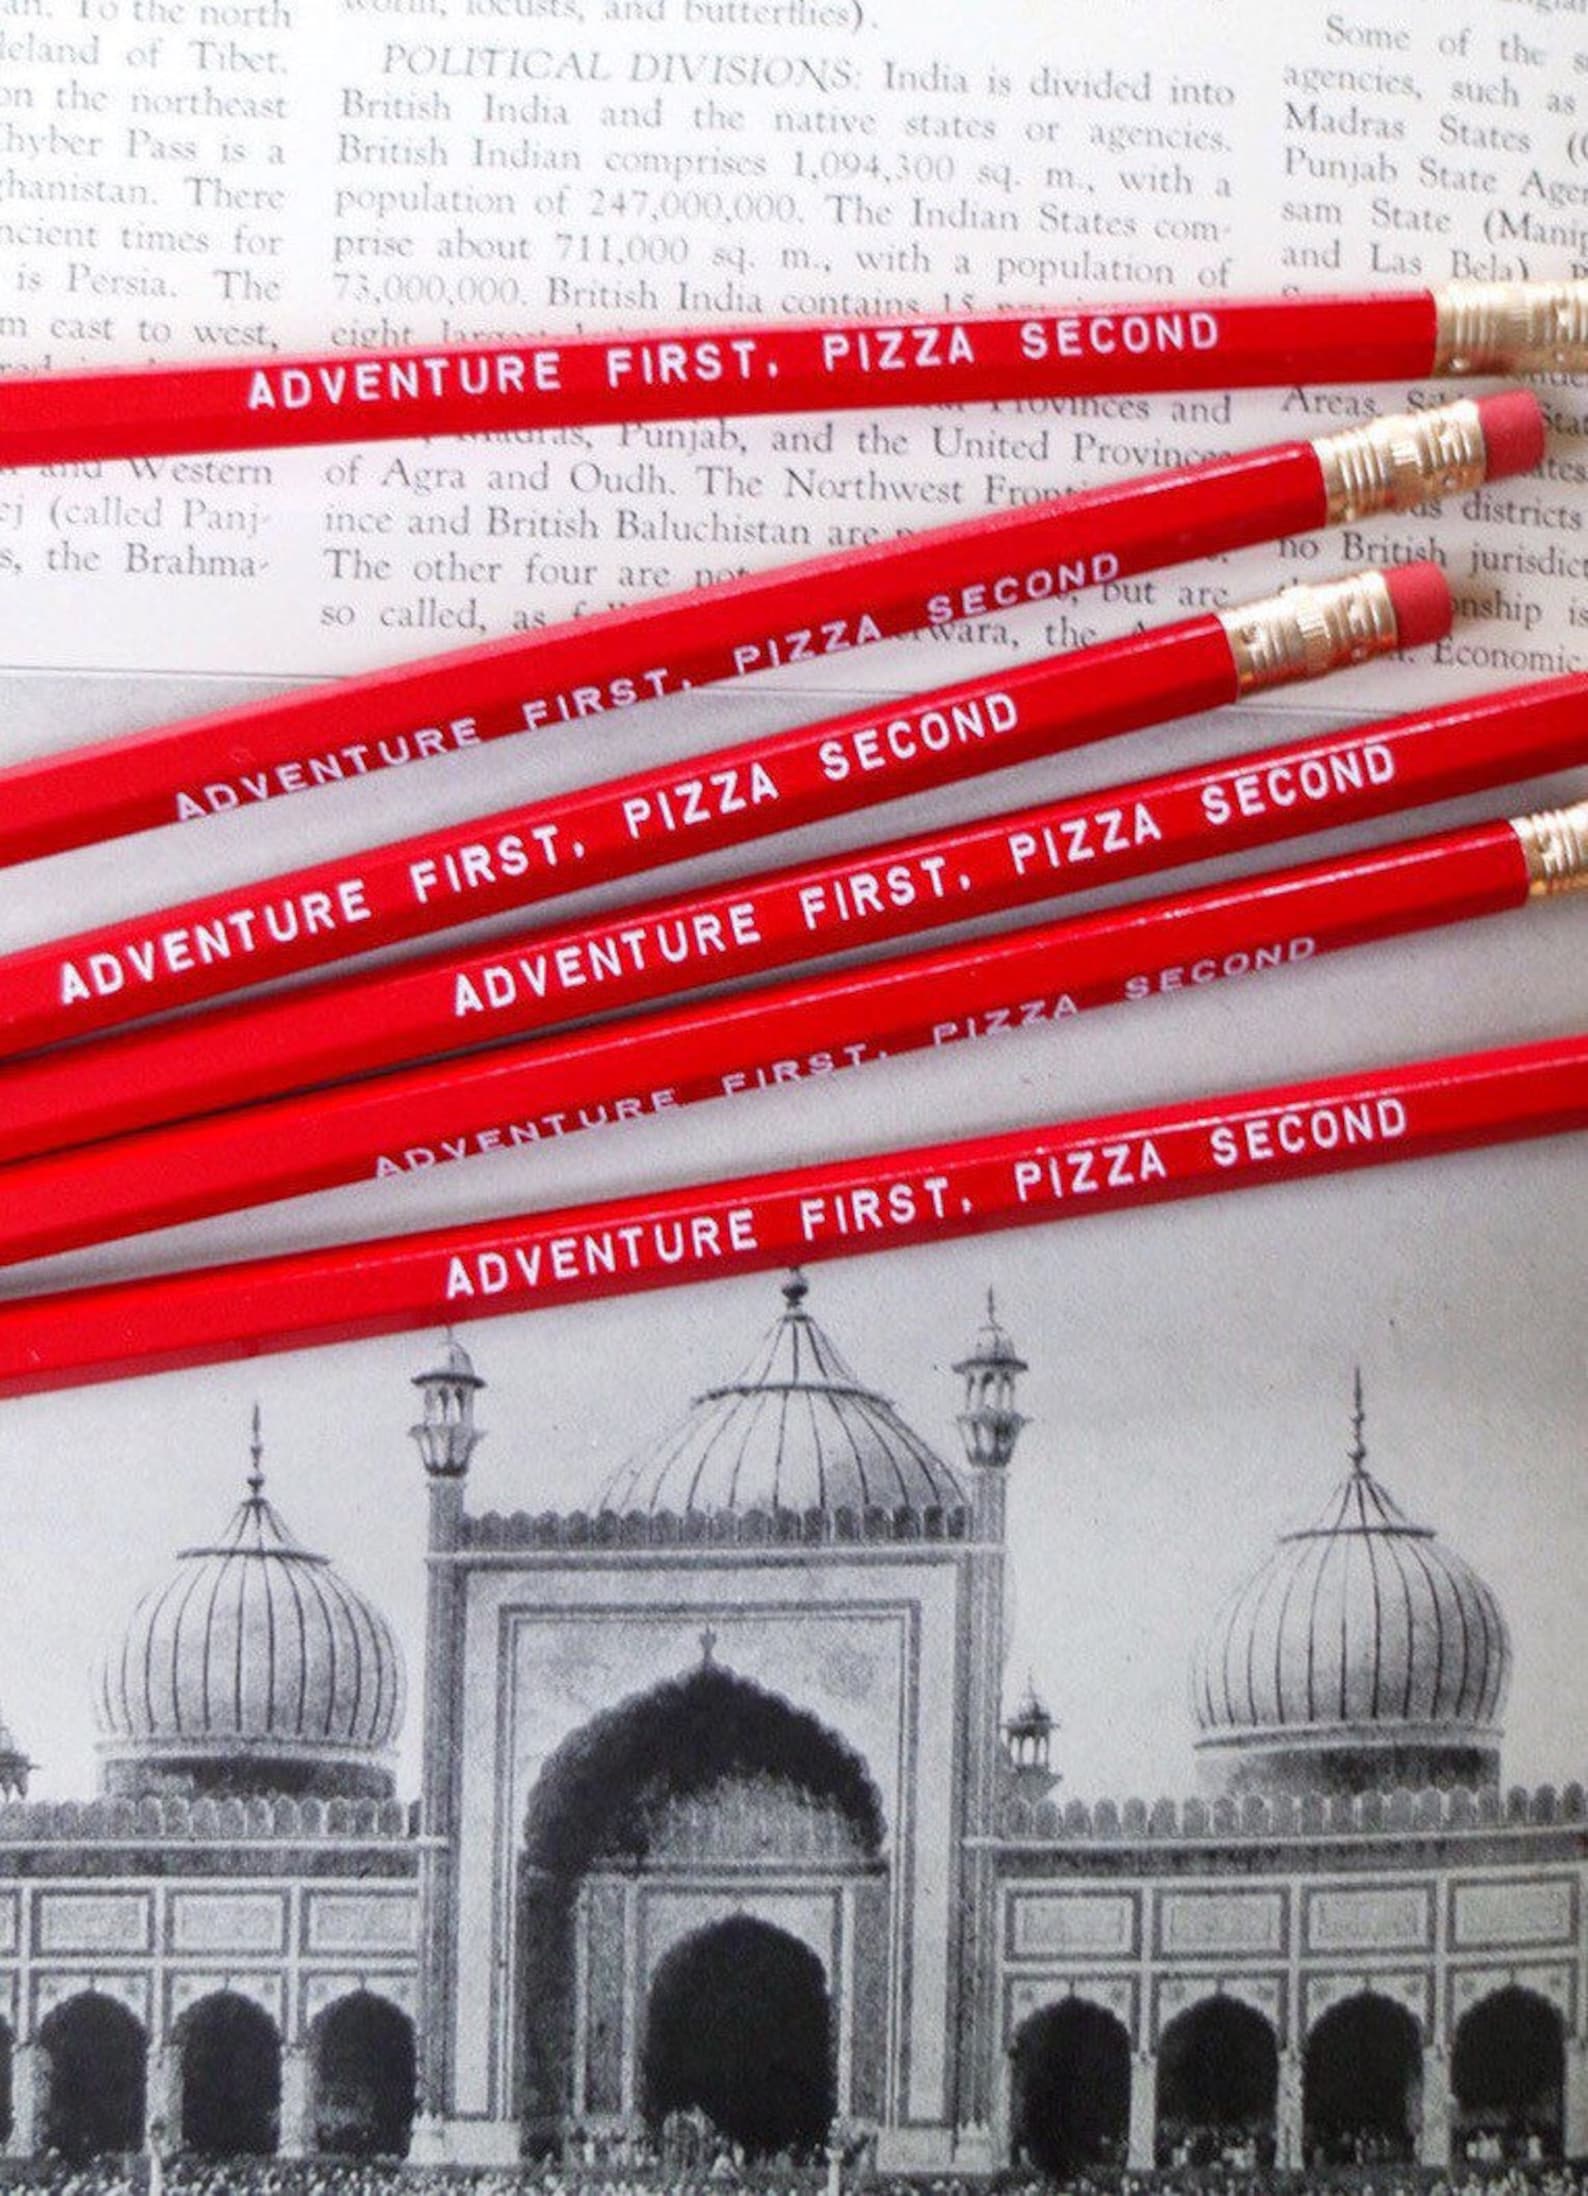 To the north
leland of Tibet.
on the northeast
hyber Pass is a
hanistan. There
ncient times for
is Persia. The
m east to west,
and Western
ej (called Panj-
s, the Brahma-
worm, locusts, and butterflies).
POLITICAL DIVISIONS: India is divided into
British India and the native states or agencies.
British Indian comprises 1,094,300 sq. m., with a
population of 247,000,000. The Indian States com-
prise about 711,000 sq. m., with a population of
73,000,000. British India contains 15
eight
Provinces and
Madras, Punjab, and the United Provinces
of Agra and Oudh. The Northwest
ince and British Baluchistan are
The other four are not
so called, as
but are
the
Some of the
agencies, such as
Madras States
Punjab State
sam State
and Las Bela)
Areas.
districts
no British
Economic
ADVENTURE FIRST, PIZZA SECOND
ADVENTURE FIRST, PIZZA SECOND
ADVENTURE FIRST, PIZZA SECOND
ADVENTURE FIRST, PIZZA SECOND
ADVENTURE FIRST, PIZZA SECOND
ADVENTURE FIRST, PIZZA SECOND